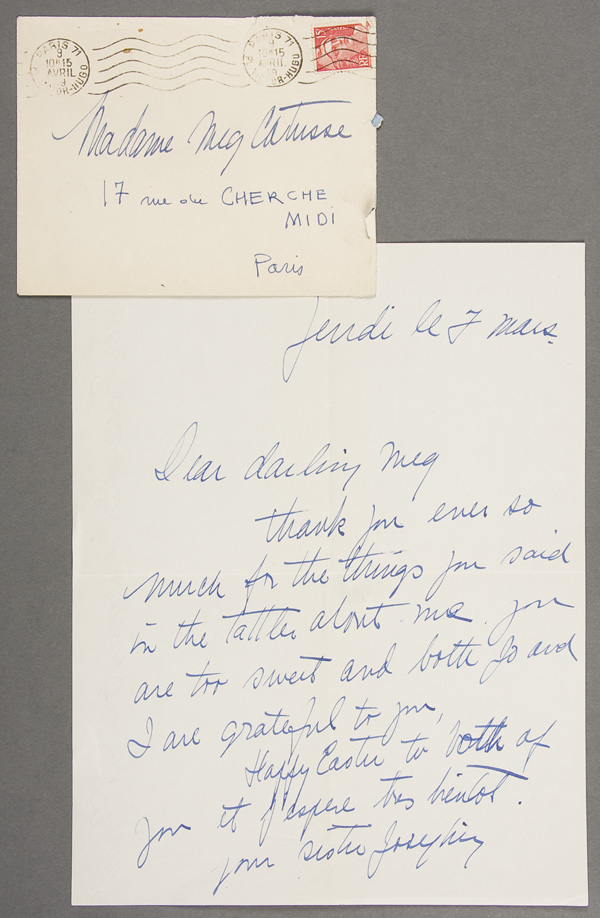 PARIS 71
9
10H15
AVRIL
PARIS 71
9
10H15
Madame Meg Catusse
17 rue du CHERCHE
MIDI
Paris
Jeudi le 7 mars
Dear darling Meg
thank you ever so
much for the things you said
in the tattler about me. you
are too sweet and both Jo and
I are grateful to you,
Happy Easter to both of
you et j'espere tres bientot.
your sister Josephine